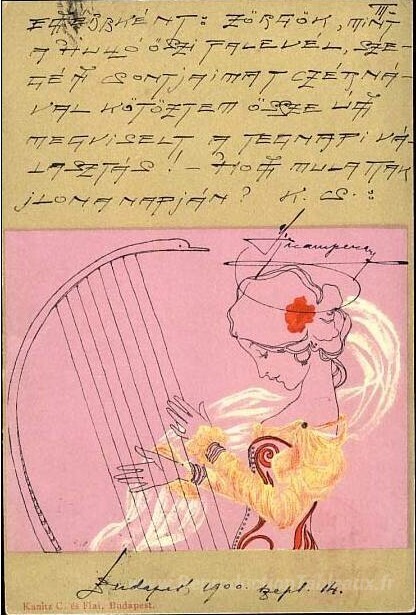 III.
EGYÉBKÉNT: ZÖRGÖK, MINT
A HULLÓ ŐSZI FALEVÉL, SZE-
GÉNY CSONTJAIMAT CZÉRNÁ-
VAL KÖTÖZTEM ÖSSZE ÚGY
MEGVISELT A TEGNAPI VÁ-
LASZTÁS! – HOGY MULATTAK
ILONA NAPJÁN? K. CS.:
Budapest 1900. szept. 14.
Kanitz C. és Fiai, Budapest.